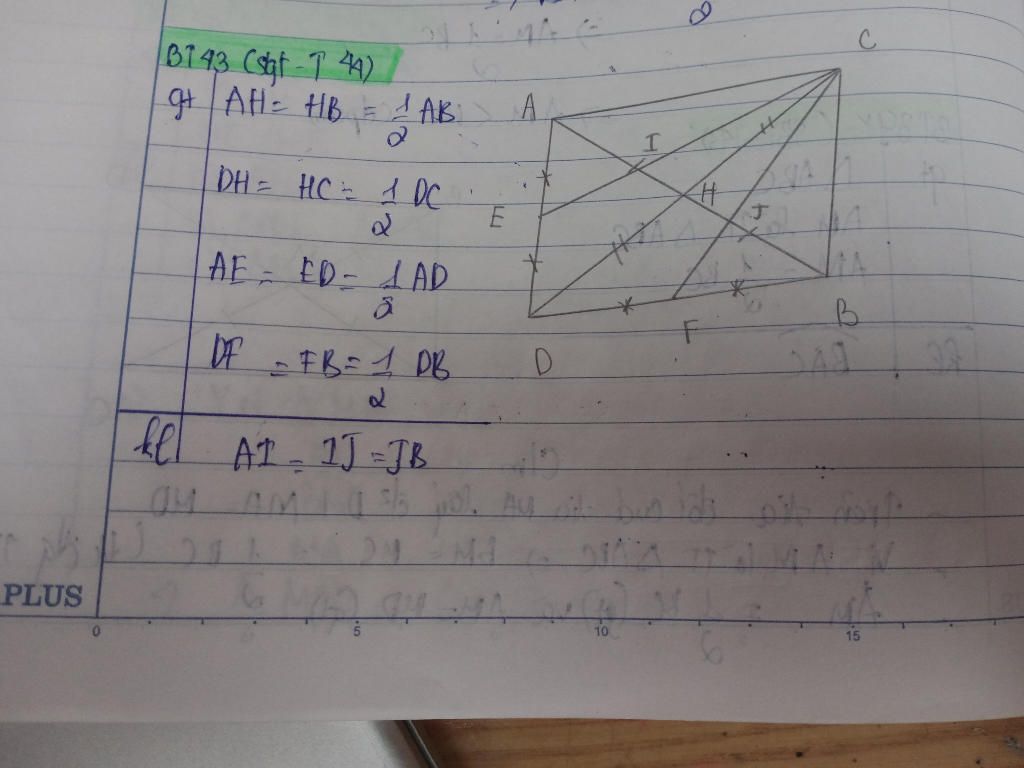 BT 43 (sgt - T 44)
gt AH = HB = 1/2 AB
DH = HC = 1/2 DC
AE = ED = 1/2 AD
DF = FB = 1/2 DB
kl AI = IJ = JB
C
A
I
H
E
J
F
B
D
PLUS
0 5 10 15